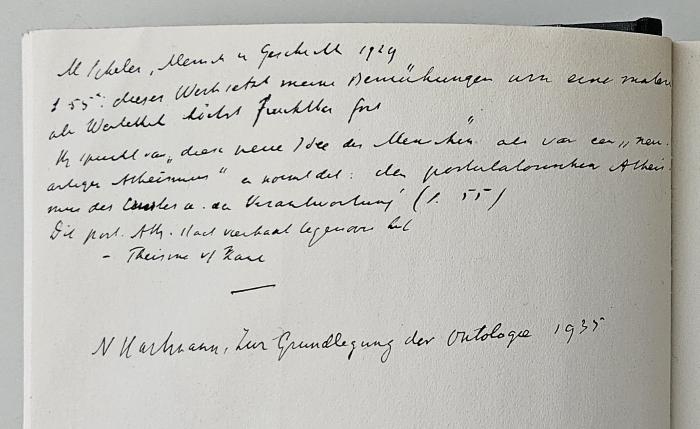 M Scheler, Mensch u Geschichte 1929
S 55: dieses Werk setzt meine Bemühungen um eine materi
ale Wertethik höchst fruchtbar fort
Hij spreekt van „diese neue Idee des Menschen" als van een „neu-
artigen Atheismus" en noemt het: den postulatorischen Atheis
mus des Ernstes u. der Verantwortung (S. 55)
Dit post. Ath. staat vierkant tegenover het
- Theisme v/ Kant
N Hartmann, Zur Grundlegung der Ontologie 1935